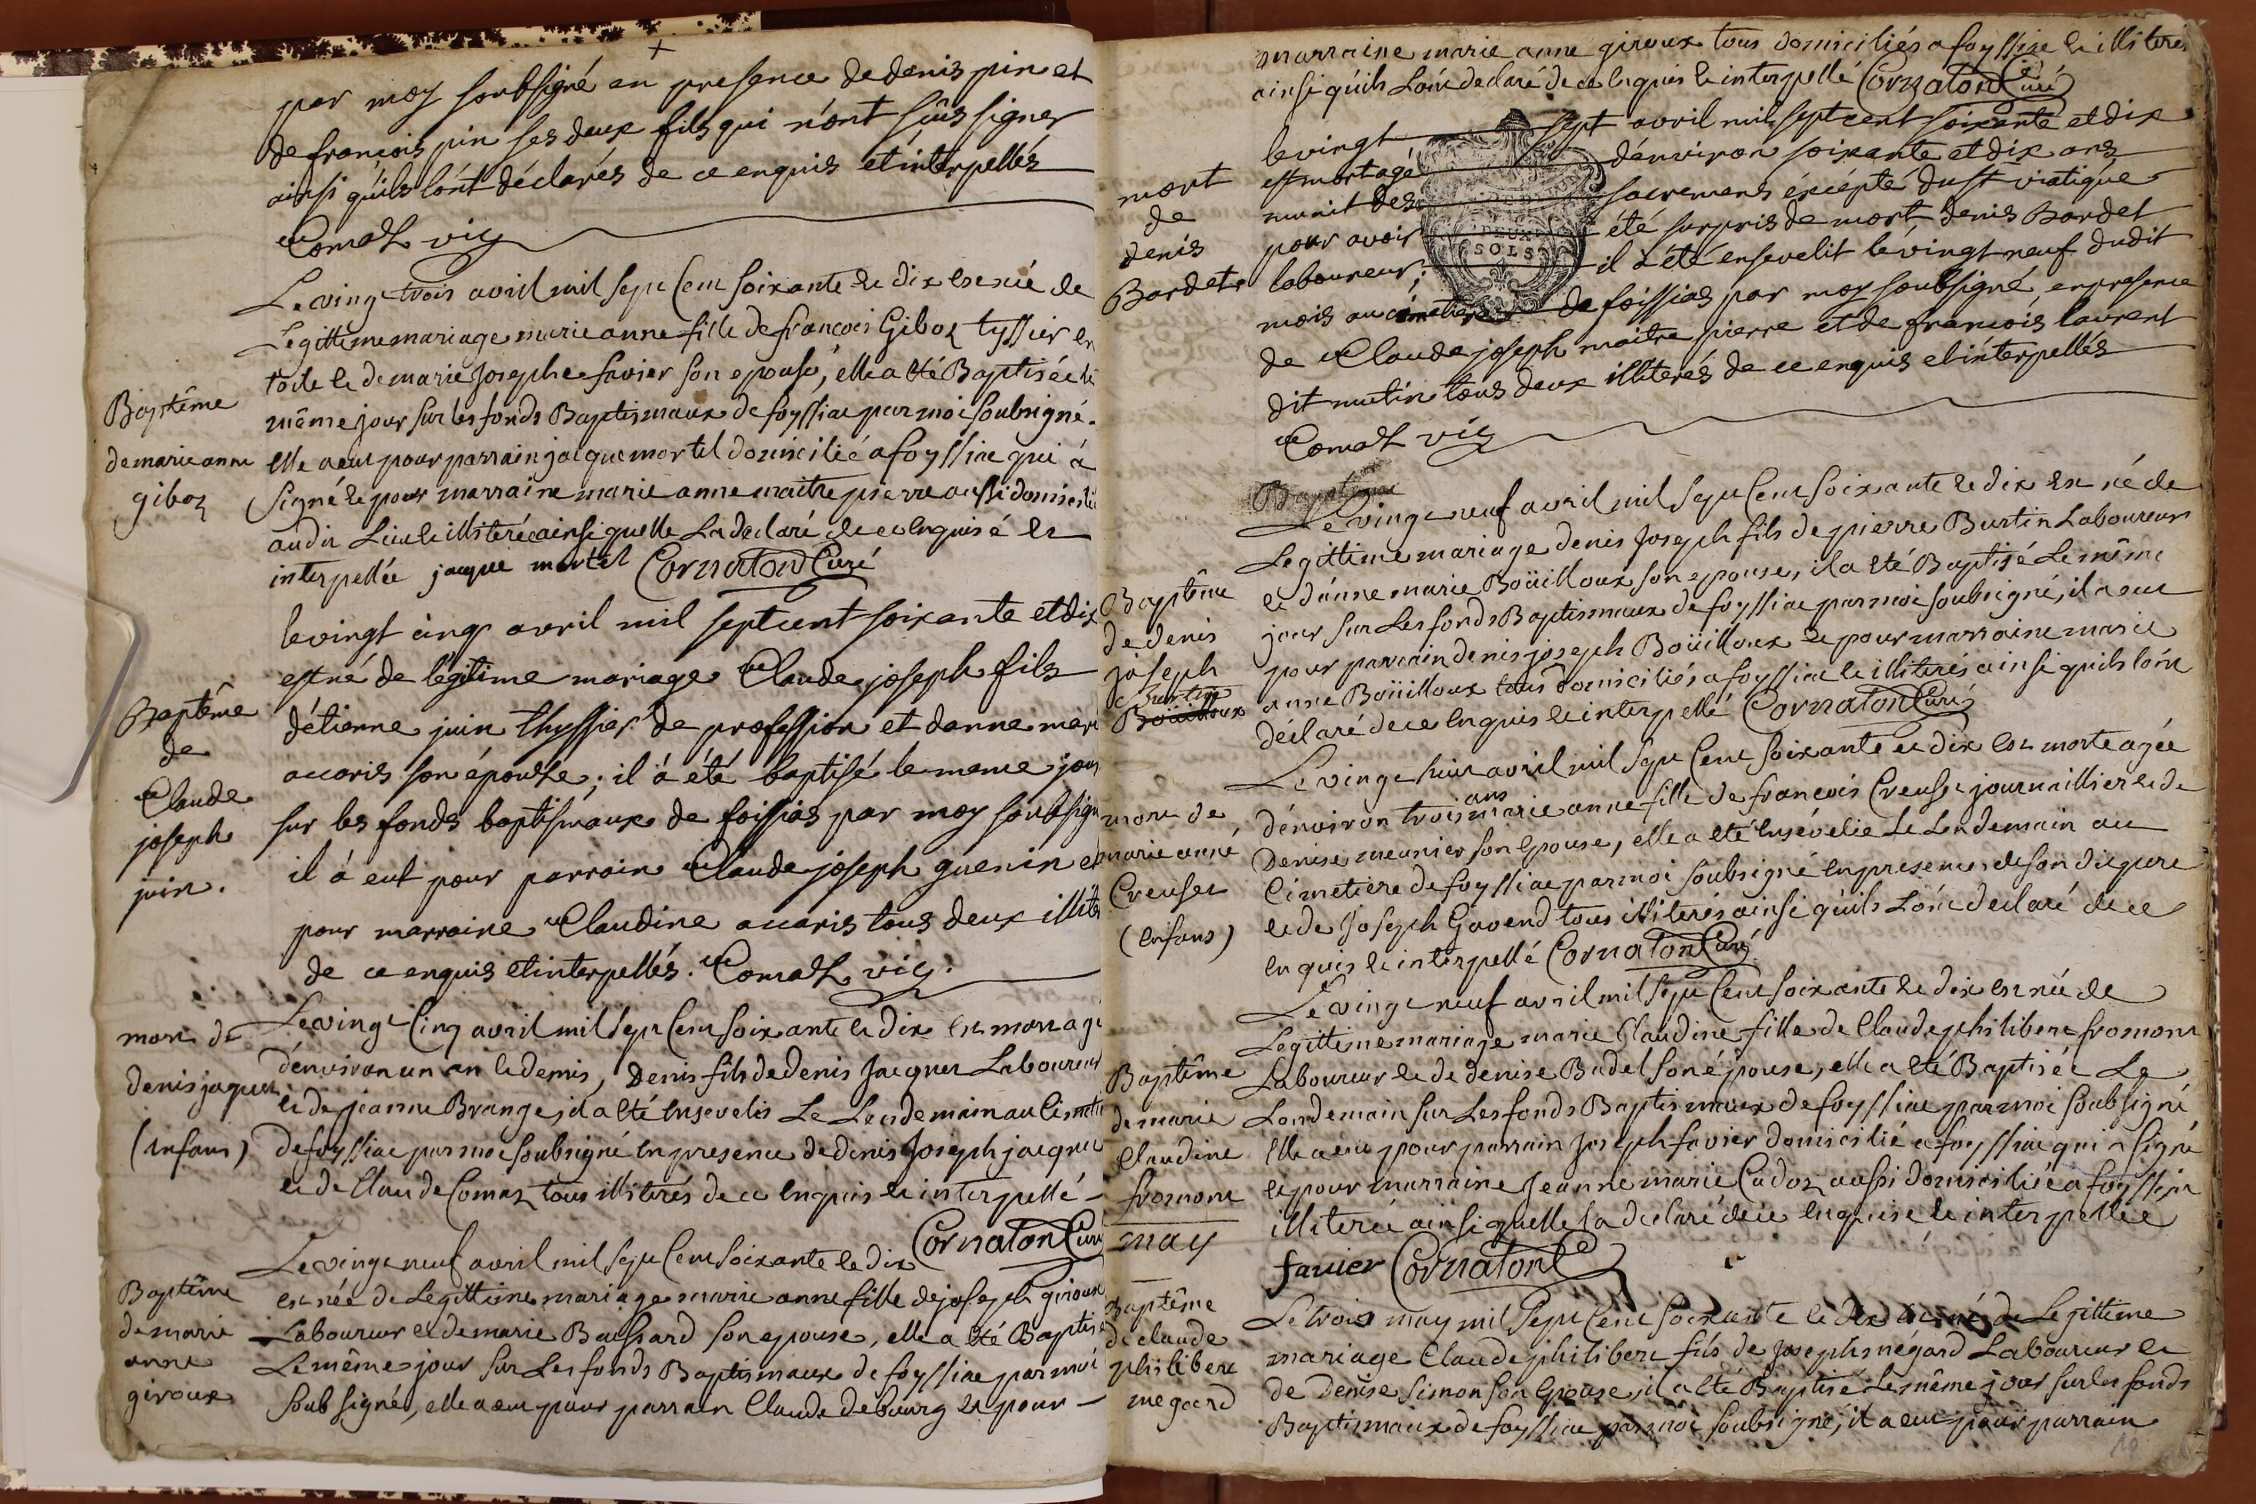 par moy soubsigné en presence de denis pin et
de francois pin ses deux fils qui n'ont sûs signer
ainsi qu'ils l'ont déclarés de ce enquis et interpellés
vic
Le vingt trois avril mil sept Cent soixante et dix est née de
Legittime mariage marie anne fille de francois Giboz tyssier en
toile et de marie Josephe favier son epouse, elle a été Baptisée le
même jour sur les fonds Baptismaux de foyssiac par moi soubsigné.
Baptême
de marie anne
giboz
elle a eu pour parrain jacque mortel domicilié a foyssiac qui à
signé et pour marraine marie anne maitrepierre aussi domicilié
audit Lieu et illiterée ainsi quelle La declaré de ce Enquise et
interpellée jacque mortel Cornaton Curé
le vingt cinq avril mil sept cent soixante et dix
est né de légitime mariage Claude joseph fils
d'étienne juin thyssier de profession et danne mari
accaris son épouse ; il à été baptisé le meme jour
sur les fonds baptismaux de foissias par moy soubsign
Baptême
de
Claude
joseph
juin.
il à eut pour parrain Claude joseph guenin et
pour marraine Claudine accaris tous deux illité
de ce enquis et interpellés. vic.
Le vingt Cinq avril mil sept Cent soixante et dix est mort agé
d'environ un an et demis, Denis fils de Denis Jacquet Laboureur
et de jeanne Brange, il a été Ensevelis Le Lendemain au Cimetie
de foyssiac par moi soubsigné en presence de denis Joseph jacquet
et de Claude Comaz tous illiterés de ce Enquis et interpellé -
mort de
denis jaquet
(enfant)
Cornaton Curé
Le vingt neuf avril mil sept Cent soixante et dix
est née de Legittime mariage marie anne fille de joseph giroux
Laboureur et de marie Baussard son epouse, elle a été Baptis
Le même jour sur Les fonds Baptismaux de foyssiac par moi
soubsigné, elle a eu pour parrain Claude debourg et pour -
Baptême
de marie
anne
giroux
marraine marie anne giroux tous domiciliés a foyssiac et illiterés
ainsi qu'ils L'ont declaré de ce Enquis et interpellé Cornaton Curé
le vingt sept avril mil sept cent soixante et dix
est mort agé d'environ soixante et dix ans
munit des sacremens éxcépté du st viatique
pour avoir été surpris de mort denis Bardet
laboureur; il à été ensevelit le vingt neuf dudit
mois au cimetiere de foissias par moy soubsigné en presence
de Claude joseph maitre pierre et de francois laurent
dit mutin tous deux illiterés de ce enquis et interpellés
DEUX
SOLS
mort
de
denis
Bardet
vic
Baptême
Le vingt neuf avril mil sept Cent soixante et dix est né de
Legittime mariage denis Joseph fils de pierre Burtin Laboureur
et d'anne marie Boüilloux son epouse, il a été Baptisé Le même
jour sur Les fonds Baptismaux de foyssiac par moi soubsigné, il a eu
pour parrain denis joseph Boüilloux et pour marraine marie
anne Boüilloux tous domiciliés a foyssiac et illiterés ainsi quils lont
déclaré de ce Enquis et interpellé Cornaton Curé
Baptême
de denis
joseph
Burtin
Boüilloux
Le vingt huit avril mil sept Cent soixante et dix est morte agée
d'environ trois ans marie anne fille de francois Creuse journaillier et de
Denise meunier son Epouse, elle a été Ensévelie Le Lendemain au
Cimetiere de foyssiac par moi soubsigné en presence de son dit pere
et de Joseph Gavend tous illiterés ainsi qu'ils L'ont declaré de ce
enquis et interpellé Cornaton Curé
mort de
marie anne
Creuset
(enfans)
Le vingt neuf avril mil sept Cent soixante et dix est née de
Legittime mariage marie Claudine fille de Claude philibert fromont
Laboureur et de denise Badel son épouse, elle a été Baptisée Le
Lendemain sur Les fonds Baptismaux de foyssiac par moi soubsigné
Elle a eu pour parrain Joseph favier domicilié a foyssiac qui a signé
et pour marraine Jeanne marie Cadoz aussi domiciliée a foyssia
illiterée ainsi quelle la declaré de ce Enquise et interpellée
favier Cornaton C
Baptême
de marie
Claudine
fromont
may
Le trois may mil sept Cent soixante et dix est né de Legittime
mariage Claude philibert fils de Joseph mégard Laboureur et
de denise simon son Epouse, il a été Baptisé Le même jour sur les fonds
Baptismaux de foyssiac par moi soubsigné, il a eu pour parrain
Baptême
de claude
philibert
megard
10